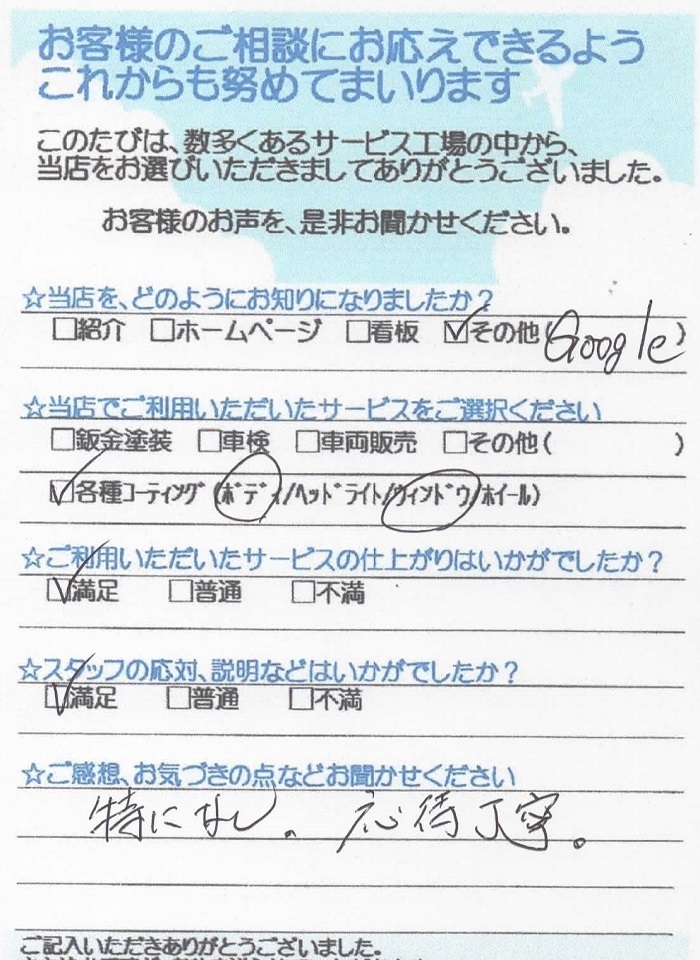 お客様のご相談にお応えできるよう
これからも努めてまいります
このたびは、数多くあるサービス工場の中から、
当店をお選びいただきましてありがとうございました。
お客様のお声を、是非お聞かせください。
☆当店を、どのようにお知りになりましたか?
□紹介 □ホームページ □看板 ☑その他(Google)
☆当店でご利用いただいたサービスをご選択ください
□鈑金塗装 □車検 □車両販売 □その他( )
☑各種コーティング(ボディ/ヘッドライト/ウィンドウ/ホイール)
☆ご利用いただいたサービスの仕上がりはいかがでしたか?
☑満足 □普通 □不満
☆スタッフの応対、説明などはいかがでしたか?
☑満足 □普通 □不満
☆ご感想、お気づきの点などお聞かせください
特になし。応待丁寧。
ご記入いただきありがとうございました。